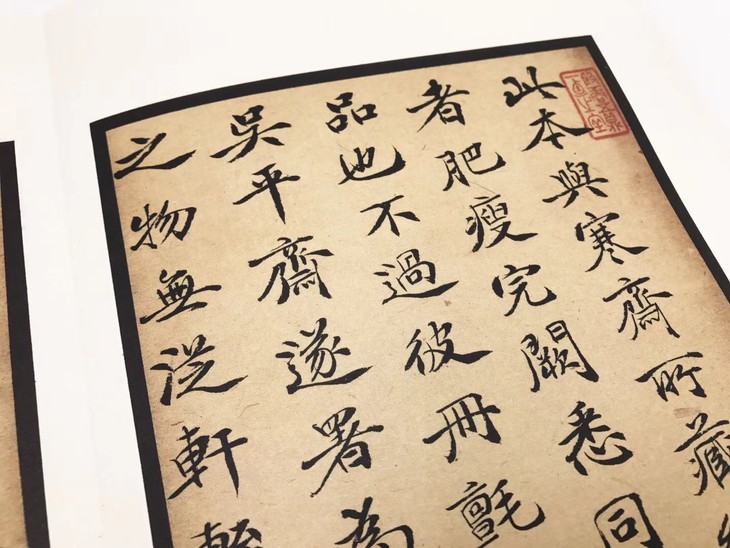 此本與寒齋所藏
者肥瘦完闕悉同
品也不過彼冊氈
吳平齋遂署為
之物無從軒